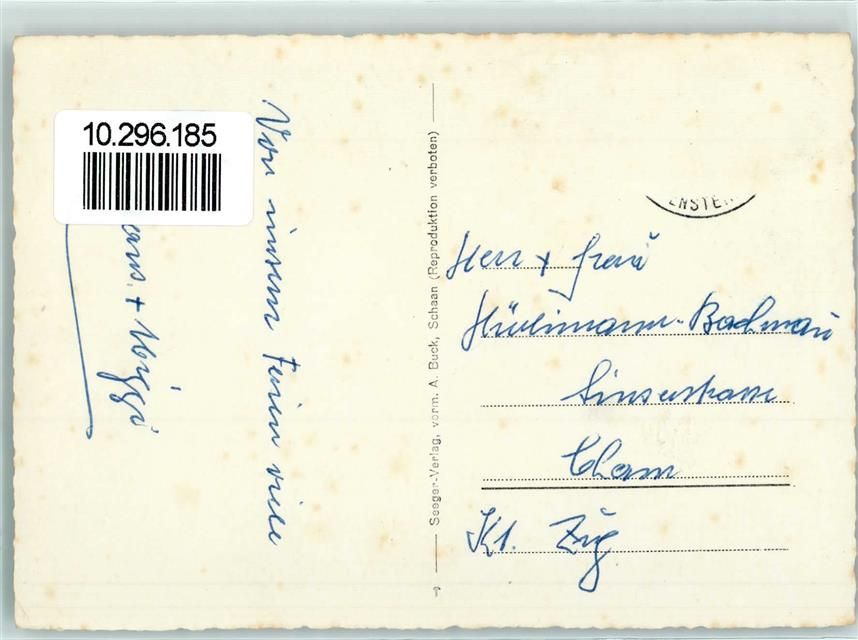 10.296.185
Von unsern Ferien viele
Hans + Wiggi
Seeger-Verlag, vorm. A. Buck, Schaan (Reproduktion verboten)
ENSTE
Herr + Frau
Hürlimann-Bachmann
Sinserstrasse
Cham
Kt. Zug